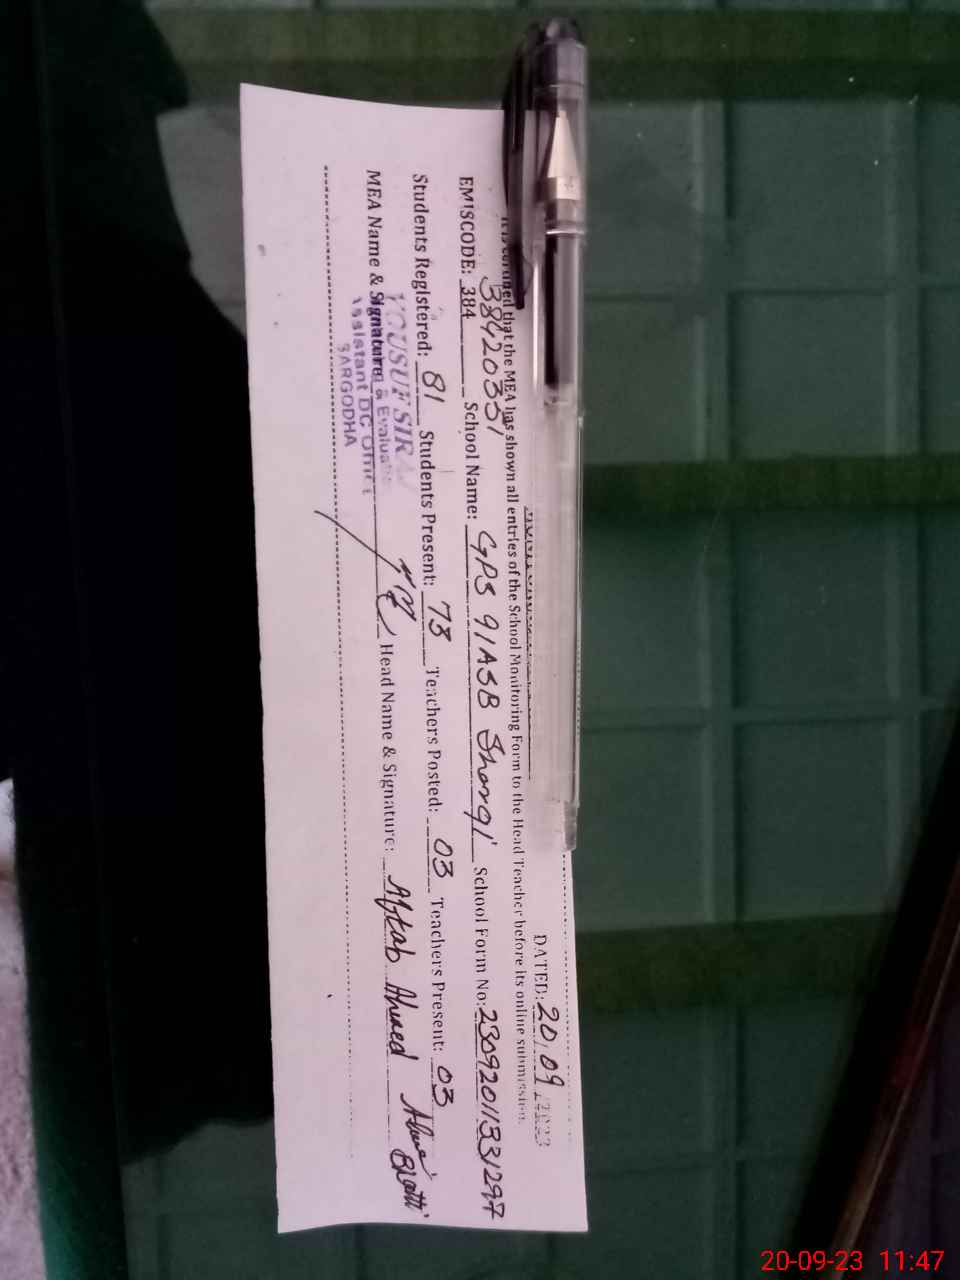 DATED: 20/09/2023
that the MEA has shown all entries of the School Monitoring Form to the Head Teacher before its online submission.
38420331
EMISCODE: 384 School Name: GPS 91ASB School Form No: 23092011331297
Students Registered: 81 Students Present: 73 Teachers Posted: 03 Teachers Present: 03
MEA Name & Signature Head Name & Signature: Aftab Ahmed
YOUSUF
& Evaluation
Assistant DC Office
SARGODHA
20-09-23 11:47